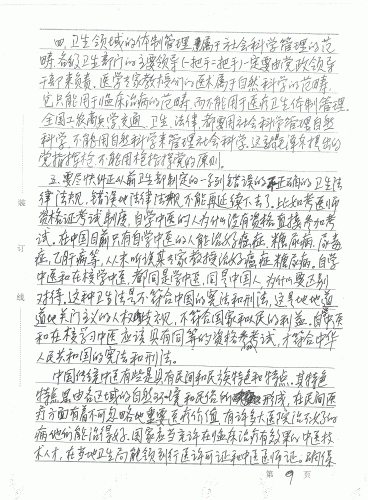 四.卫生领域的体制管理,属于社会科学管理的范
畴.各级卫生部门的主要领导(一把手二把手)一定要由党政领导
干部来负责,医学专家教授们的医术属于自然科学的范畴
它只能用于临床治病的范畴,而不能用于医疗卫生体制管理.
全国工农商学交通、卫生、法律、都要用社会科学管理自然
科学,不能用自然科学来管理社会科学。这是毛泽东提出的
党指挥枪,不能用枪指挥党的原则。
五.要尽快纠正从前卫生部制定的一系列错误的不正确的卫生法
律法规,错误地法律法规不能再延续下去了.比如考医师
资格证考试制度,自学中医的人为什么没有资格直接参加考
试,在中国目前只有自学中医的人能治好癌症.糖尿病.尿毒
症、乙肝病等,人未听说某专家教授治好癌症.糖尿病,自学
中医和在校学中医,都同是学中医,同是中国人,为什么要区别
对待,这种卫生法是不符合中国的宪法和刑法,这是地地道
道地关门主义的人权歧视,不符合国家和人民的利益,自学中医
和在校学习中医应该具有同等的资格参考试,才符合中华
人民共和国的宪法和刑法。
中国传统中医有些是具有民间和民族特色和特点,其特色
特点是由各区域的自然环境和民俗的形成,在民间医
疗方面有着不可忽略地重要医疗价值,有许多大医院治不好的
病他们能治得好.国家应当允许在临床治疗有效果的中医技
术人才,在当地卫生局能领到行医许可证和中医医师证。确保
装
订
线
第 9 页